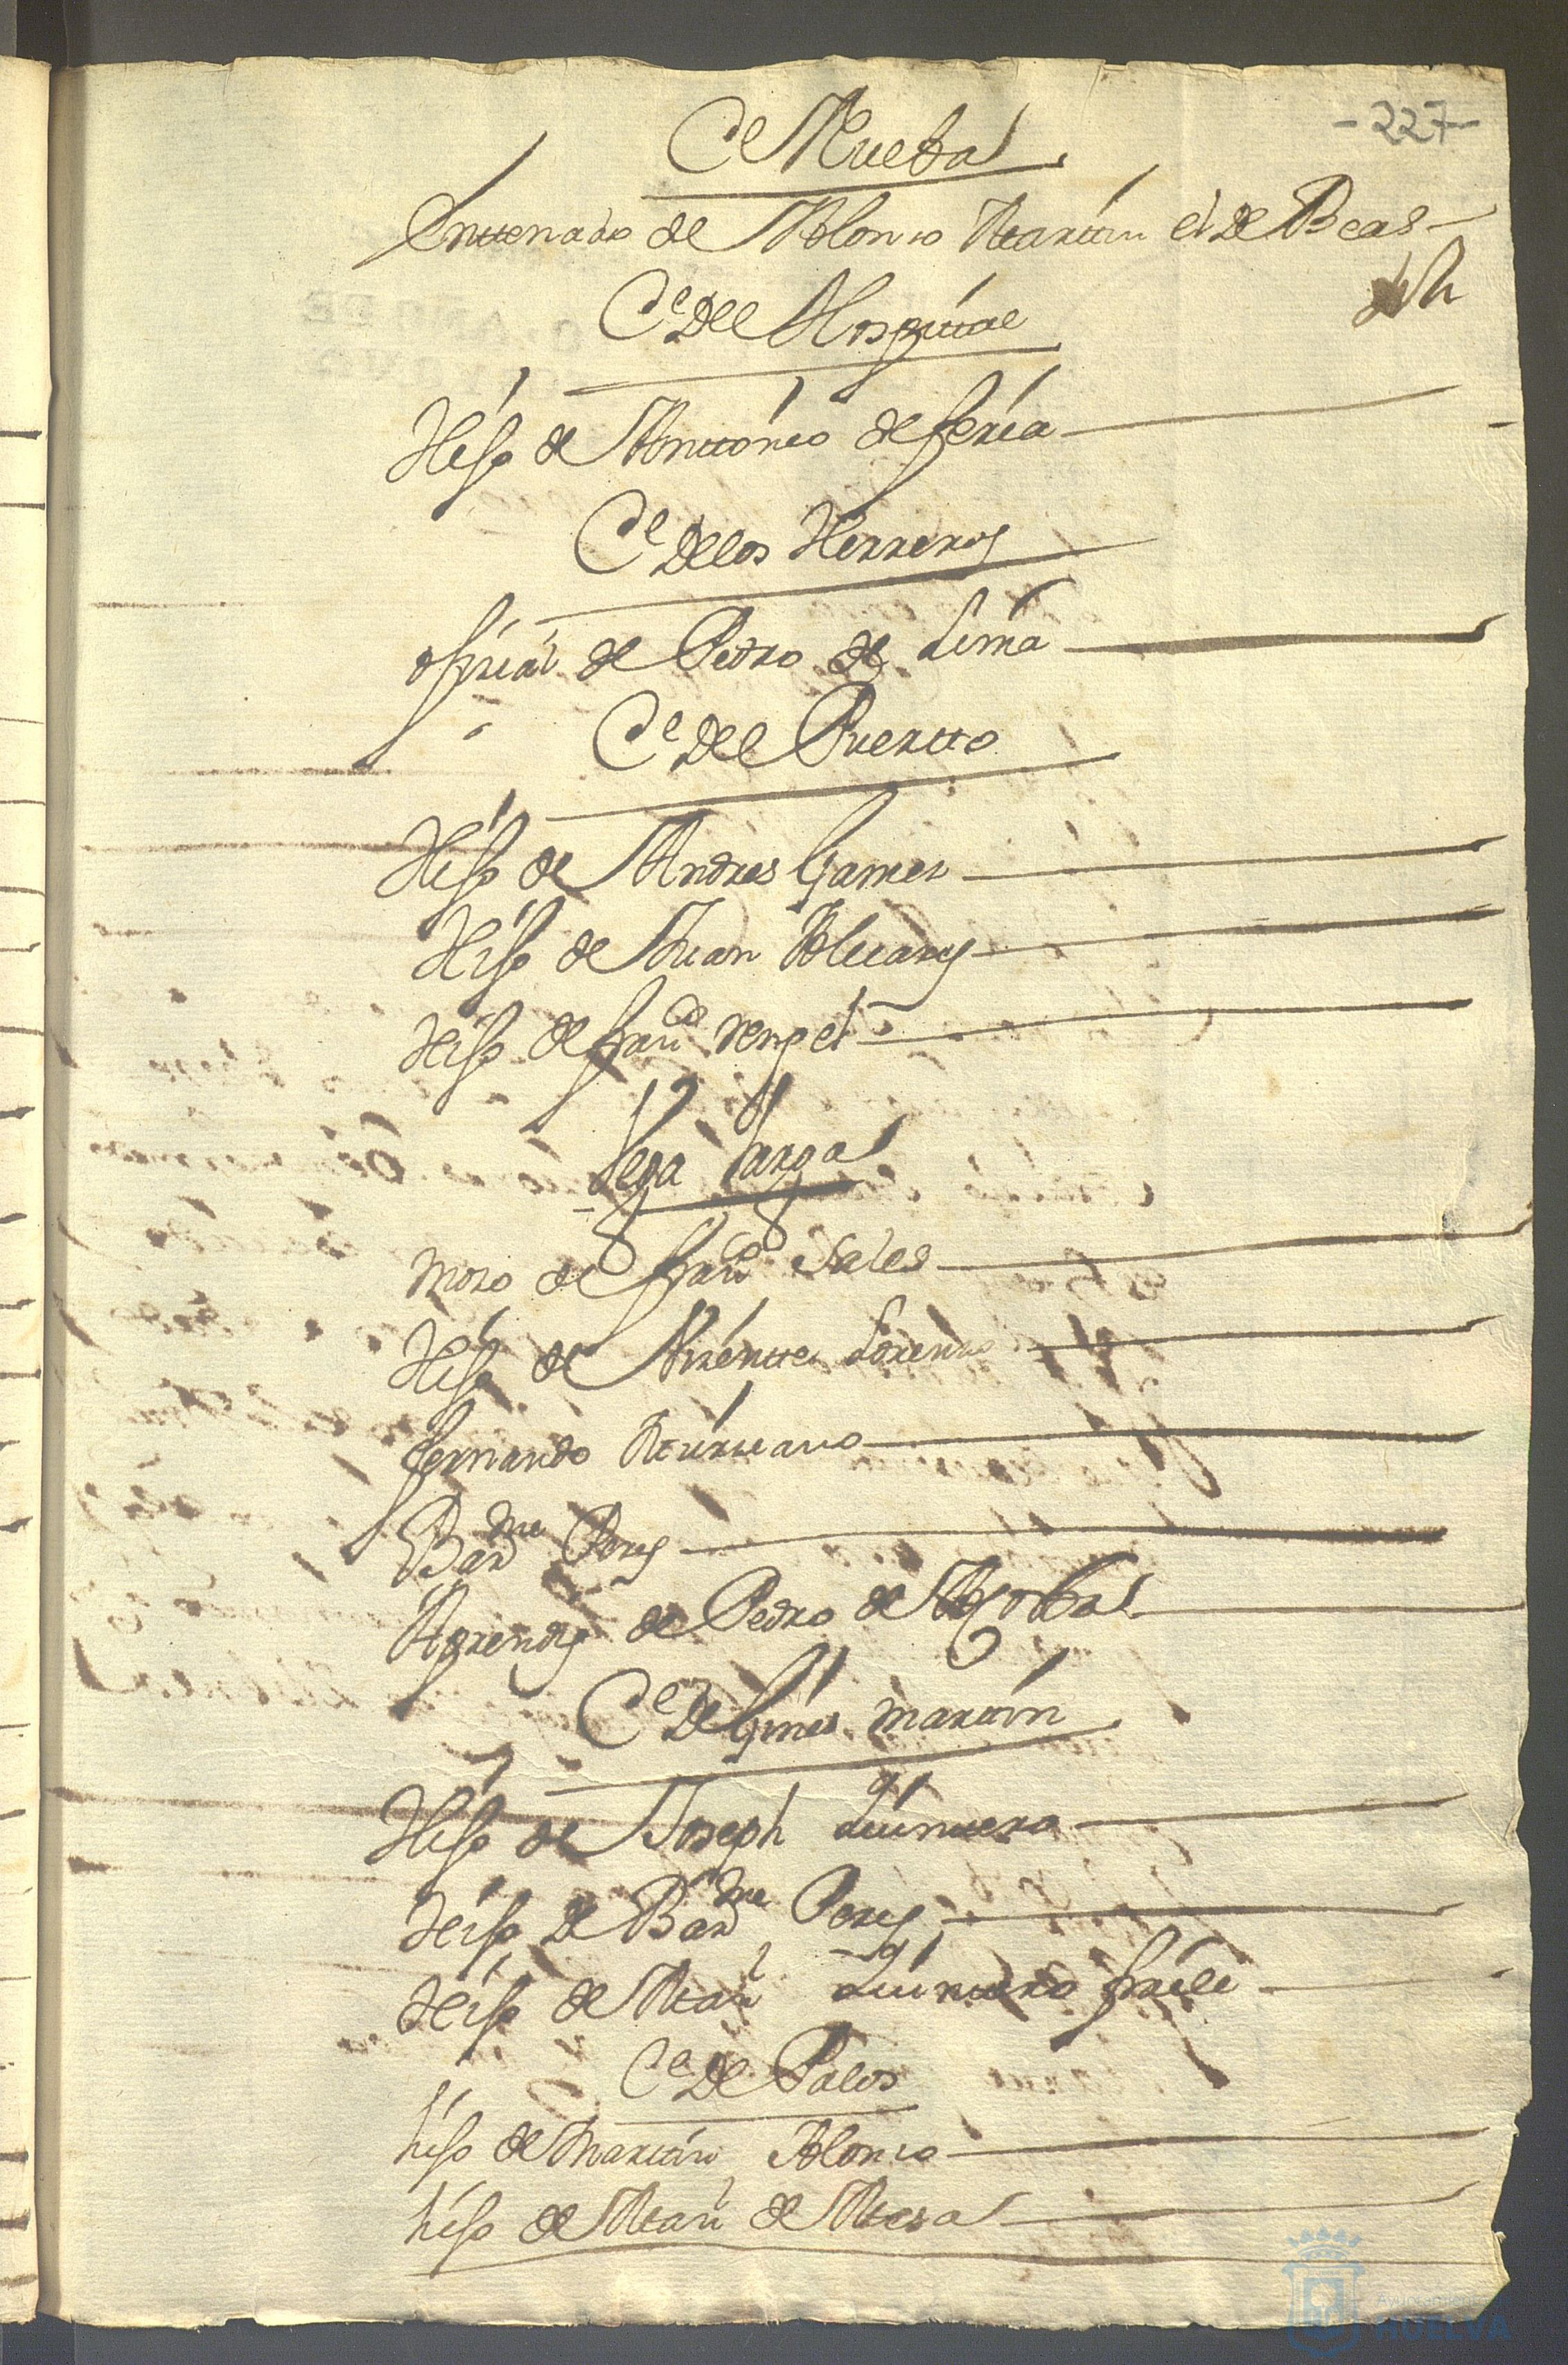 -227-
Ce Nueba
Entenado de Alonso Martin el de Beas
Ce Del Hospittal
Hijo de Anttonio de feria
Ce De los Herreros
ofizial de Pedro de Lima
Ce Del Puertto
Hijo de Andres Gamez
Hijo de Juan Alvarez
Hijo de franco rengel
Vega Larga
mozo de franco Sales
Hijo de Vizente Lorenzo
fernando
Barme Perez
Aprendiz de Pedro de
Ce De Gines martin
Hijo de Joseph quintero
Hijo de Barme Perez
Hijo de Manl quintero fraile
Ce De Palos
hijo de martin Alonso
hijo de Manl de Mesa
Ayuntamiento
HUELVA